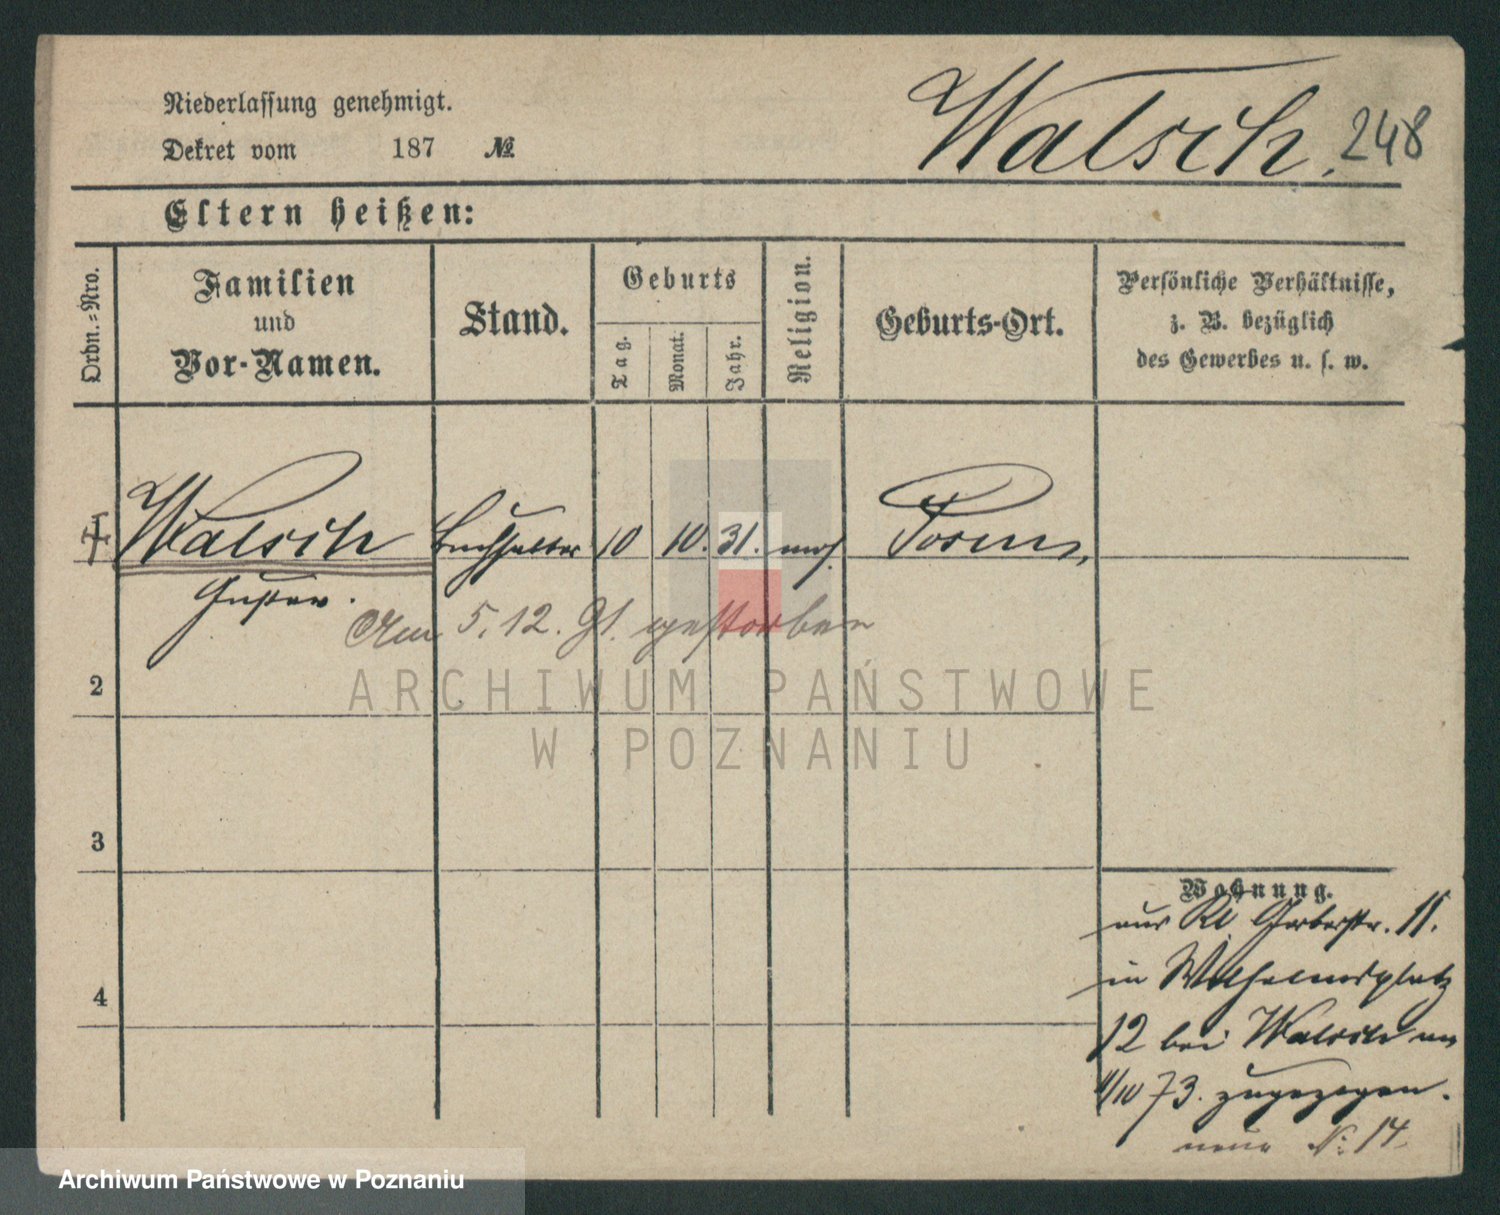 Niederlassung genehmigt.
Dekret vom 187 №
Walsch. 248
Eltern heißen:
Ordn.-Nro.
Familien
und
Vor-Namen.
Stand.
Geburts
Tag.
Monat.
Jahr.
Religion.
Geburts-Ort.
Persönliche Verhältnisse,
z. B. bezüglich
des Gewerbes u. s. w.
Walsch Buchhalter 10 10. 31. mos. Posen,
Gustav.
Am 5.12. gestorben
2
3
4
ARCHIWUM PAŃSTWOWE
W POZNANIU
Wohnung.
aus Kl. Gerberstr. 11.
in Wilhelmsplatz
12 bei Walsch am
1/10 73. zugezogen.
neue N: 14.
Archiwum Państwowe w Poznaniu